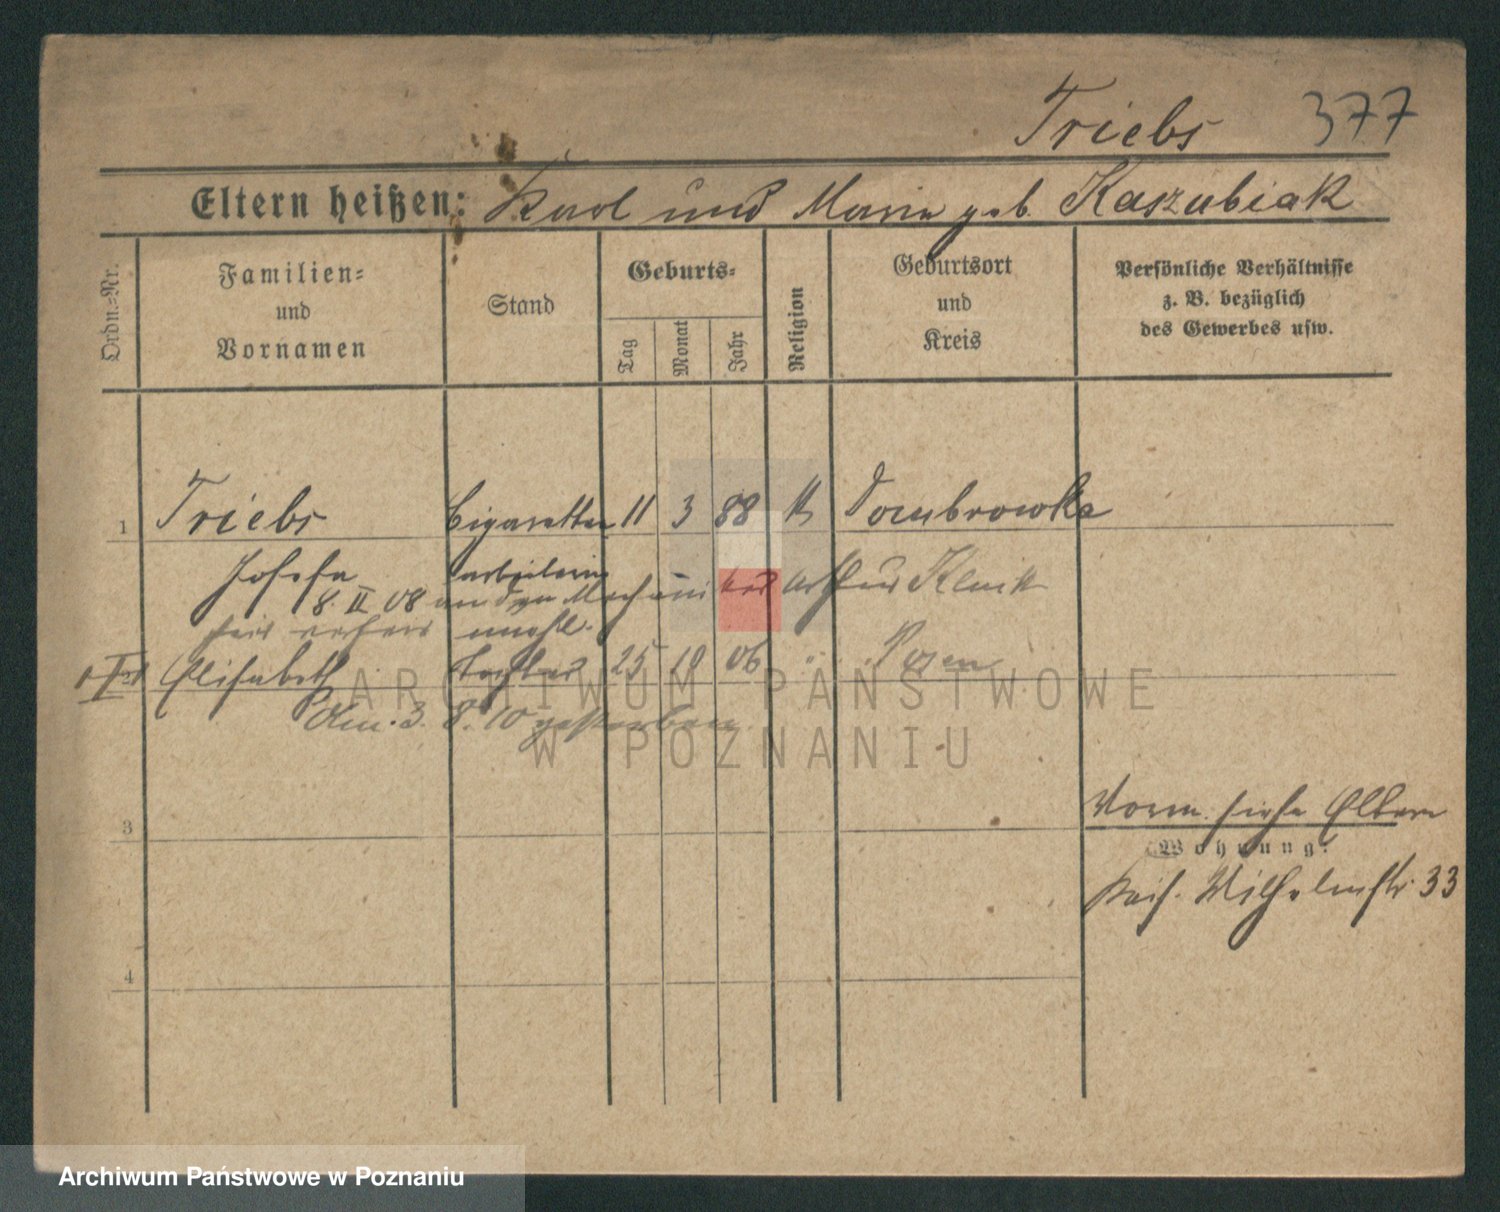 Triebs 377
Eltern heißen: Karl und Maria geb. Kaszubiak
Ordn.=Nr.
Familien=
und
Vornamen
Stand
Geburts=
Tag
Monat
Jahr
Religion
Geburtsort
und
Kreis
Persönliche Verhältnisse
z. B. bezüglich
des Gewerbes usw.
1 Triebs Cigaretten 11 3 88 k Dombrowka
Josefa arbeiterin
8. II 08 an den Mechaniker Arthur
verh.
Elisabeth Tochter 25 10 06 " Posen
3. 8. 10 gestorben
ARCHIWUM PAŃSTWOWE
W POZNANIU
3
Vorm. siehe Eltern
Wohnung:
Kais. Wilhelmstr. 33
4
Archiwum Państwowe w Poznaniu